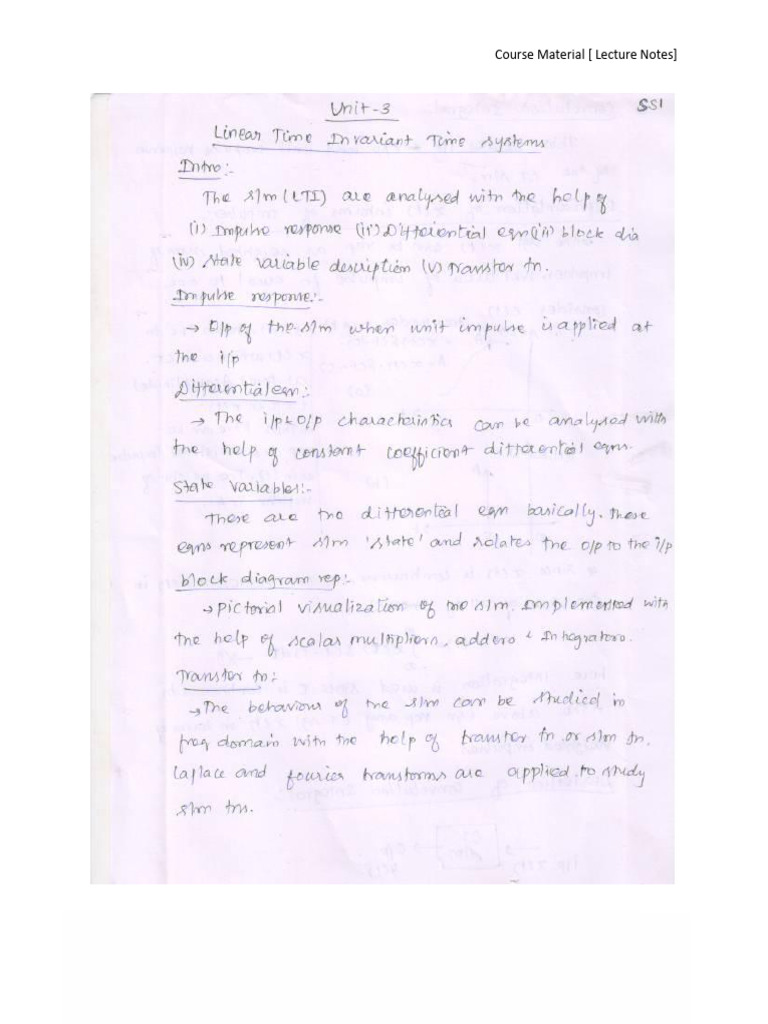 Course Material [ Lecture Notes]
Unit-3
SS1
Linear Time Invariant Time systems
Intro:-
The s/m (LTI) are analysed with the help of
(i) Impulse response (ii) Differential eqn (iii) block dia
(iv) State variable description (v) transfer fn.
Impulse response:-
→ O/p of the s/m when unit impulse is applied at
the i/p
Differential eqn:-
→ The i/p & O/p characteristics can be analysed with
the help of constant coefficient differential eqns.
State Variables:-
These are the differential eqn basically. These
eqns represent s/m 'state' and relates the o/p to the i/p
block diagram rep:-
→ Pictorial visualization of the s/m. Implemented with
the help of scalar multipliers, adders & Integrators.
Transfer fn:-
→ The behaviour of the s/m can be studied in
freq domain with the help of transfer fn or s/m fn.
Laplace and fourier transforms are applied to study
s/m fns.